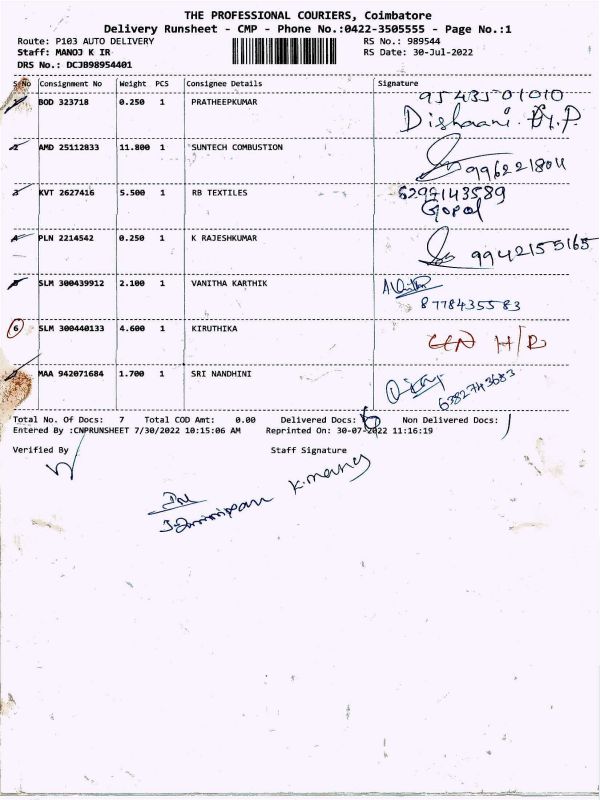 THE PROFESSIONAL COURIERS, Coimbatore
Delivery Runsheet - CMP - Phone No.:0422-3505555 - Page No.:1
Route: P103 AUTO DELIVERY RS No.: 989544
Staff: MANOJ K IR RS Date: 30-Jul-2022
DRS No.: DCJB98954401
S.No Consignment No Weight PCS Consignee Details Signature
1 BOD 323718 0.250 1 PRATHEEPKUMAR 9543501010
Dishaani
2 AMD 25112833 11.800 1 SUNTECH COMBUSTION
9962218011
3 KVT 2627416 5.500 1 RB TEXTILES 6297143589
Gopal
4 PLN 2214542 0.250 1 K RAJESHKUMAR
9942155165
5 SLM 300439912 2.100 1 VANITHA KARTHIK
8778435583
6 SLM 300440133 4.600 1 KIRUTHIKA H/R
7 MAA 942071684 1.700 1 SRI NANDHINI
6382743683
Total No. Of Docs: 7 Total COD Amt: 0.00 Delivered Docs: 6 Non Delivered Docs: 1
Entered By :CNPRUNSHEET 7/30/2022 10:15:06 AM Reprinted On: 30-07-2022 11:16:19
Verified By Staff Signature
K.manoj